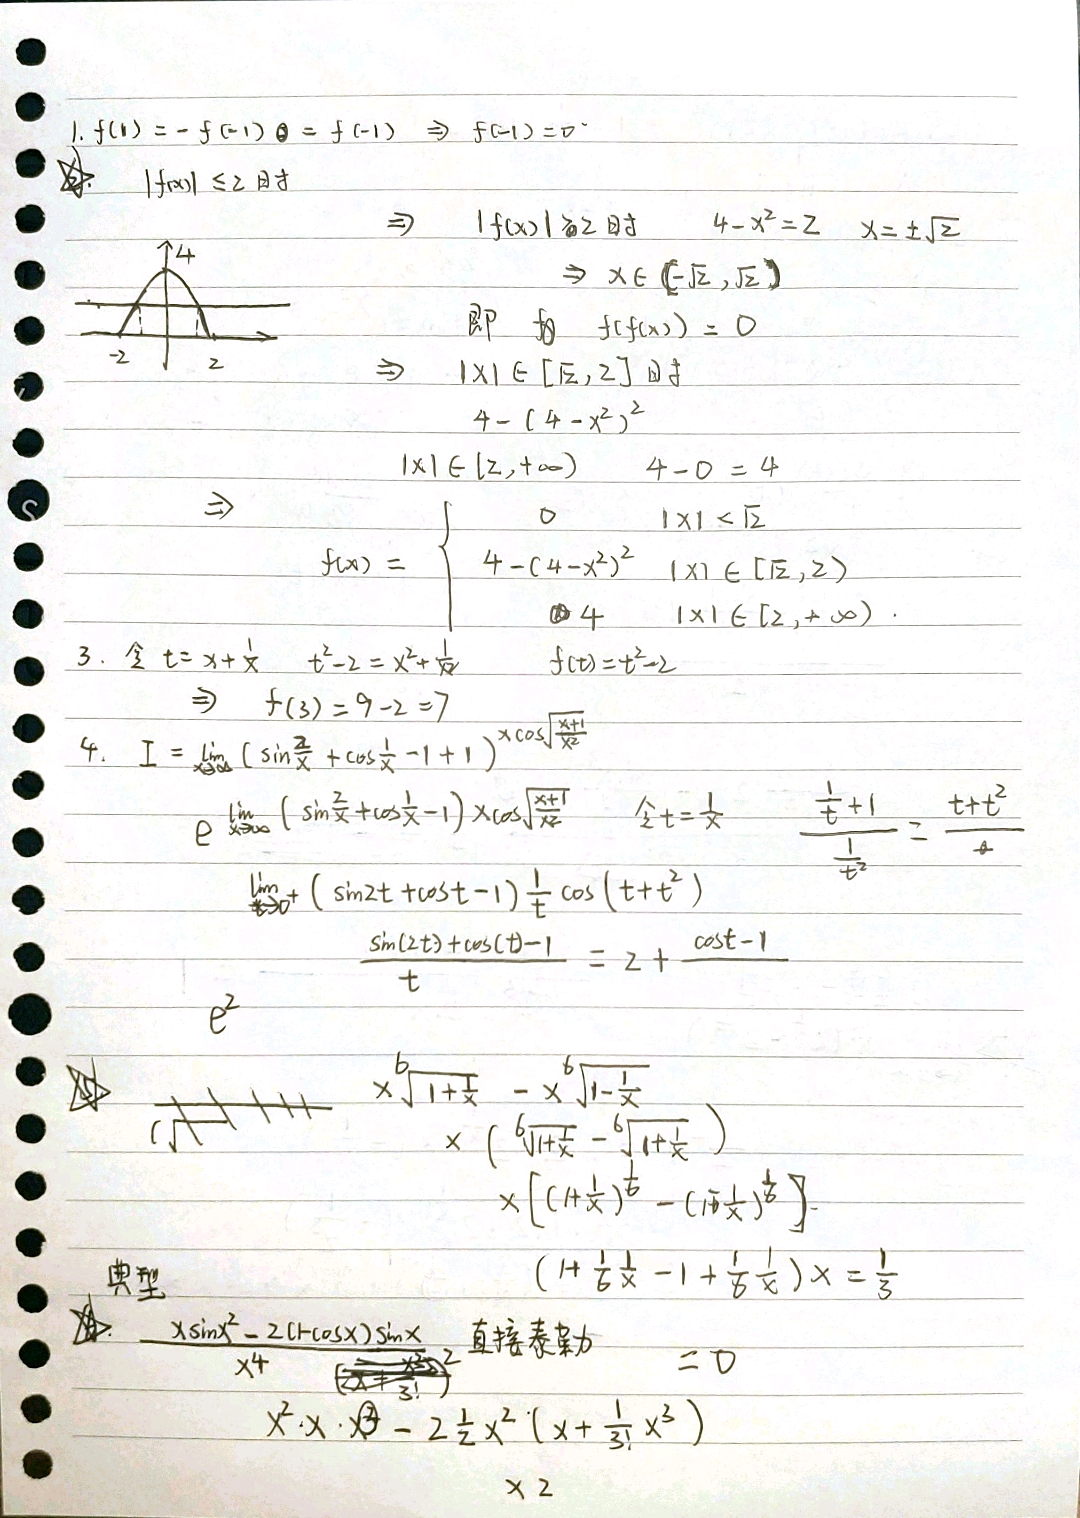 1. f(1) = - f(-1) = f(-1) ⇒ f(-1) = 0
2. |f(x)| ≤ 2 时
⇒ |f(x)| ≥ 2 时 4 - x² = 2 x = ±√2
4
⇒ x ∈ (-√2, √2)
即 f(f(x)) = 0
-2 2
⇒ |x| ∈ [√2, 2] 时
4 - (4 - x²)²
|x| ∈ [2, +∞) 4 - 0 = 4
⇒ 0 |x| < √2
f(x) = { 4 - (4 - x²)² |x| ∈ [√2, 2)
4 |x| ∈ [2, +∞).
3. 令 t = x + 1/x t² - 2 = x² + 1/x² f(t) = t² - 2
⇒ f(3) = 9 - 2 = 7
4. I = lim x→∞ (sin 2/x + cos 1/x - 1 + 1)^(x cos √((x+1)/x²))
e^(lim x→∞ (sin 2/x + cos 1/x - 1) x cos √((x+1)/x²)) 令 t = 1/x (1/t + 1)/(1/t²) = t + t²
lim t→0⁺ (sin2t + cost - 1) 1/t cos (t + t²)
(sin(2t) + cos(t) - 1)/t = 2 + cost - 1
e²
5. x ⁶√(1 + 1/x) - x ⁶√(1 - 1/x)
x (⁶√(1 + 1/x) - ⁶√(1 + 1/x))
x [(1 + 1/x)^(1/6) - (1 - 1/x)^(1/6)].
(1 + 1/6 1/x - 1 + 1/6 1/x) x = 1/3
典型
6. (x sinx² - 2(1-cosx) sinx)/x⁴ 直接泰勒 = 0
x² · x · - 2 1/2 x² · (x + 1/3! x³)
x 2